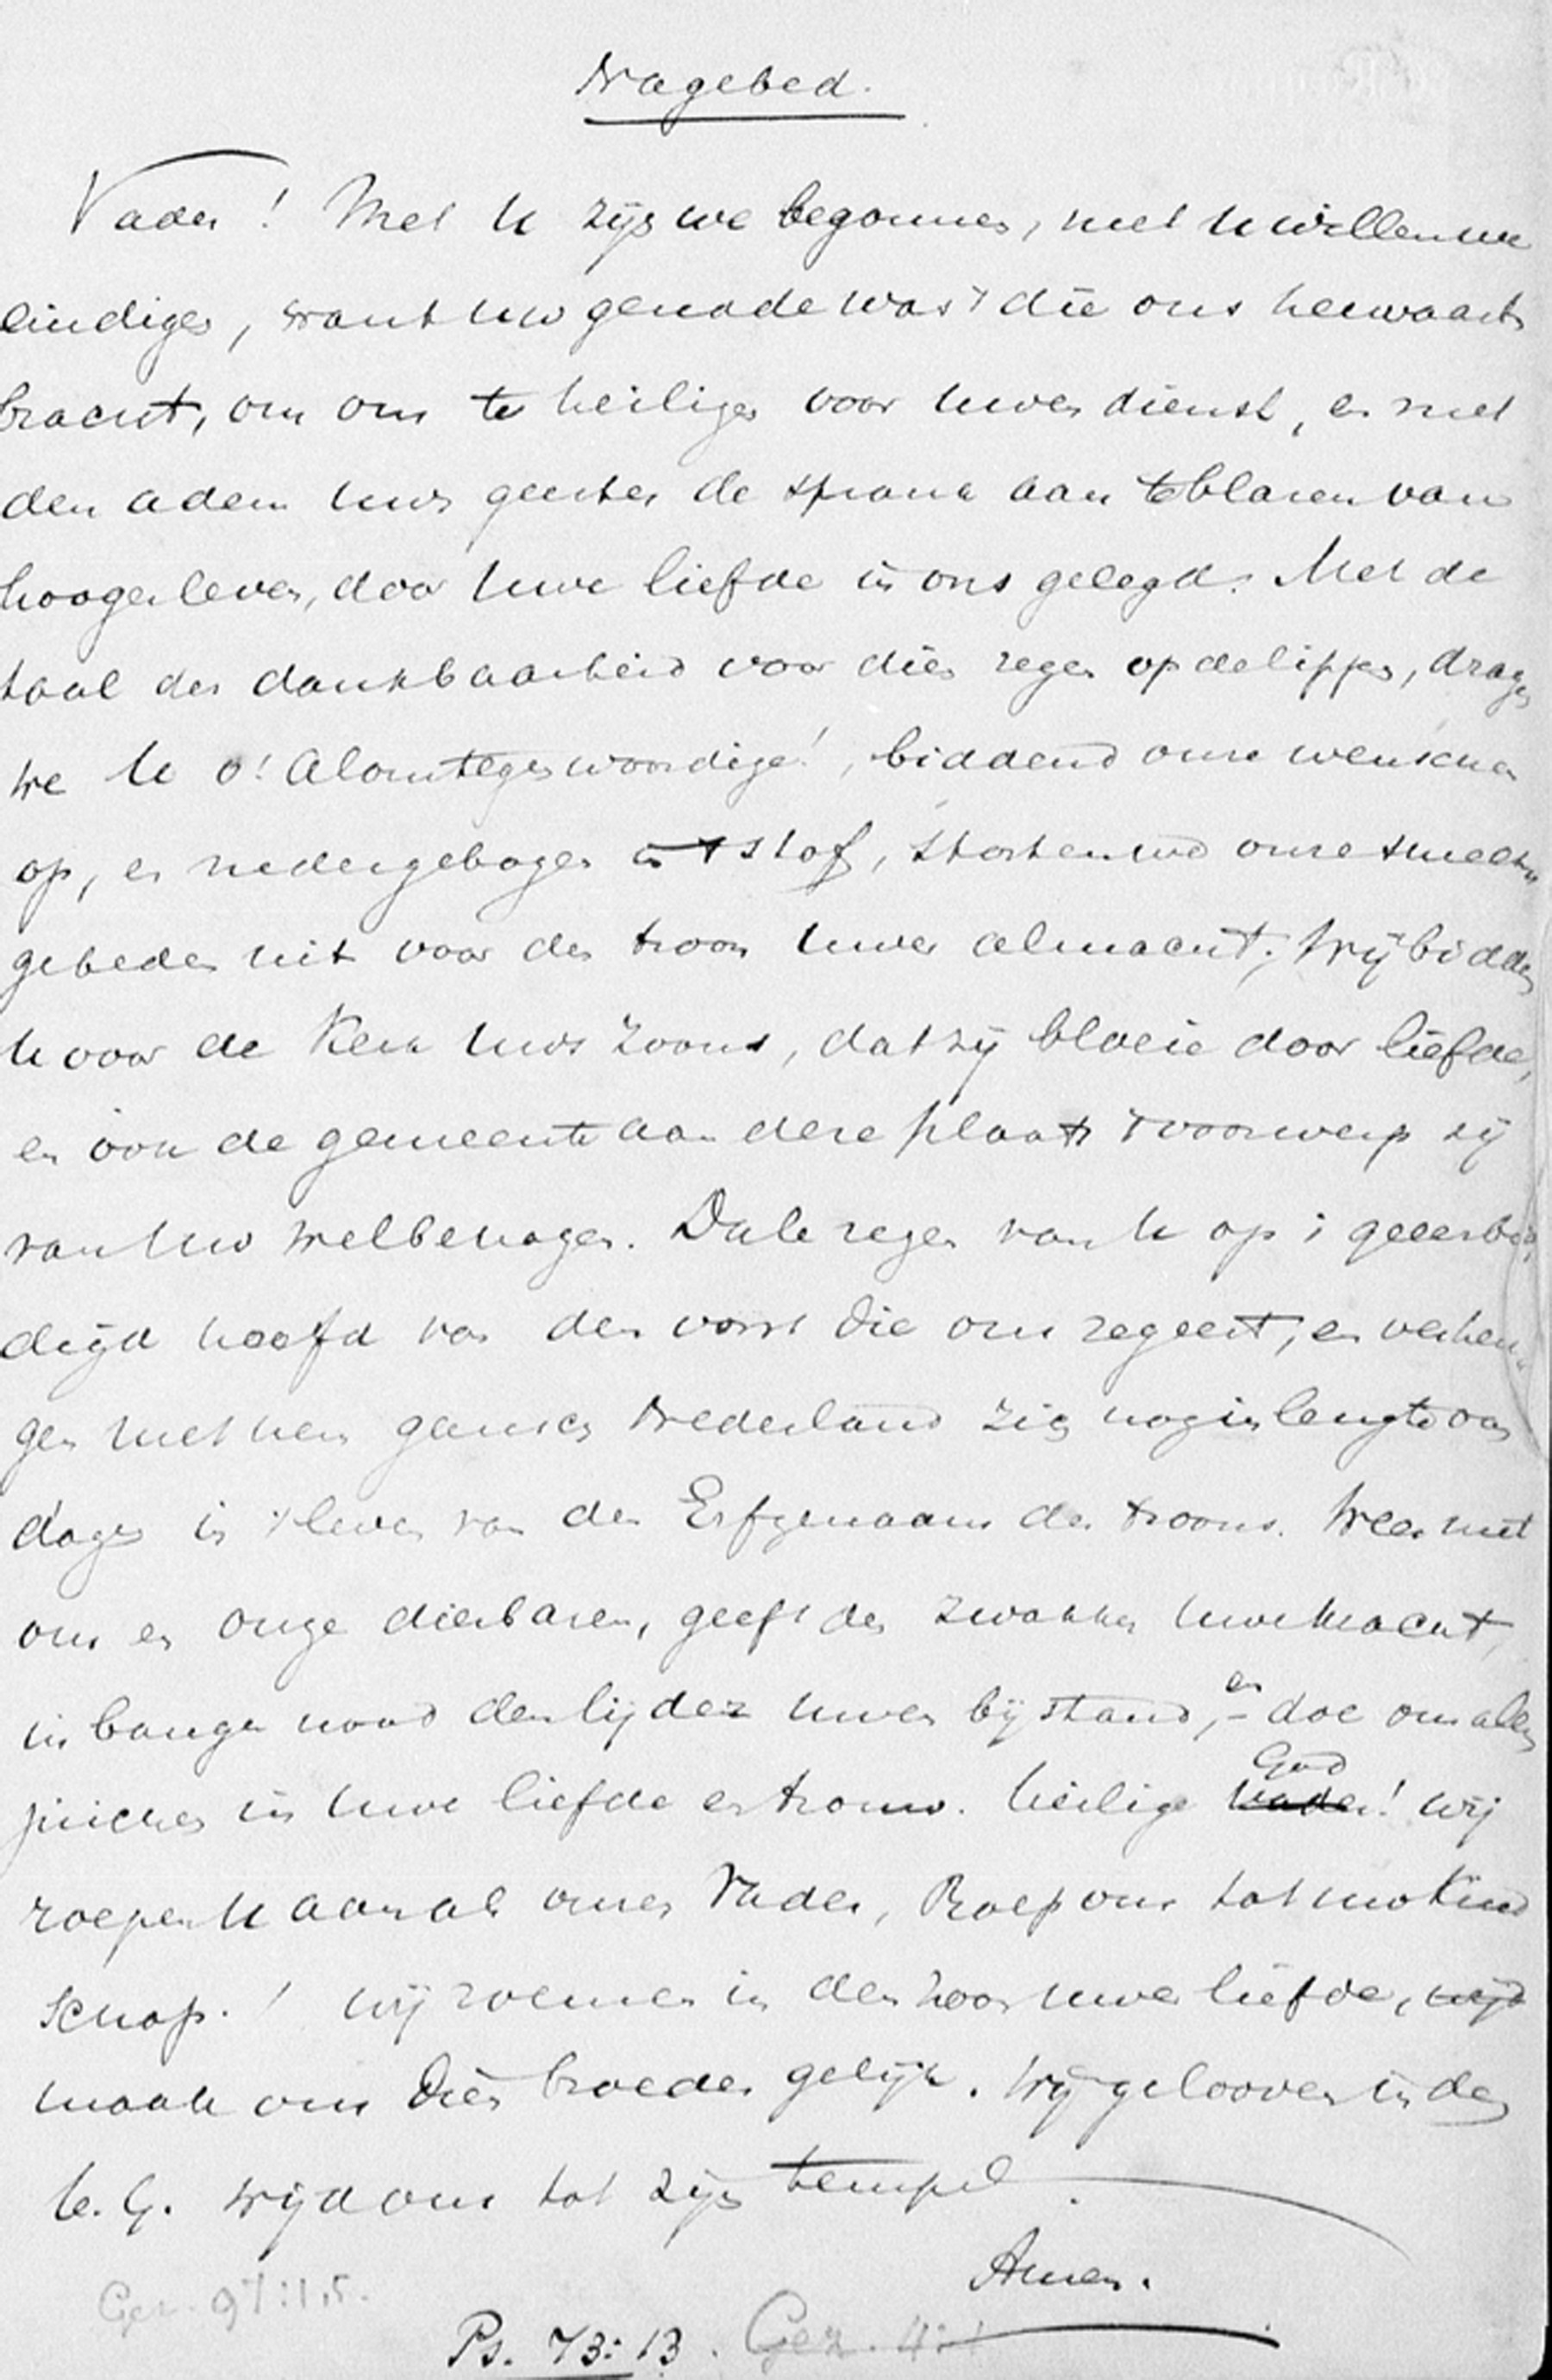 Nagebed.
Vader! Met U zijn we begonnen, met U willen we
eindigen, want Uw genade was 't die ons herwaarts
bracht, om ons te heiligen voor Uwen dienst, en met
den adem Uws geestes de spronk aan te blazen van
hooger leven, door Uwe liefde in ons gelegd. Met de
taal der dankbaarheid voor dien zegen op de lippen, dragen
we U o! Alomtegenwoordige!, biddend onze wenschen
op, en nedergebogen in 't stof, storten wij onze smeek
gebeden uit voor den troon Uwer almacht; Wij bidden
U voor de Kerk Uws Zoons, dat zij bloeie door liefde,
en ook de gemeente aan deze plaats 't voorwerp zij
van Uw welbehagen. Dale zegen van U op 't geëerbie
digd hoofd van den vorst die ons regeert, en verheu
gen met hem gansch Nederland zich nog in lengte van
dagen in 't leven van den Erfgenaam des troons. Wees met
ons en onze dierbaren, geeft den zwakken Uwe kracht,
in bangen nood den lijder Uwen bijstand, en doe ons allen
juichen in Uwe liefde en trouw. Heilige Vader! God wij
roepen U aan als onzen Vader, Roep ons tot Uw Kind
schap.! Wij roemen in den Zoon Uwer liefde, wijd
maak ons Dien broeder gelijk. Wij gelooven in den
H. G. wijd ons tot zijn tempel.
Amen.
Gez. 97:1,5.
Ps. 73:13. Gez. 4:1